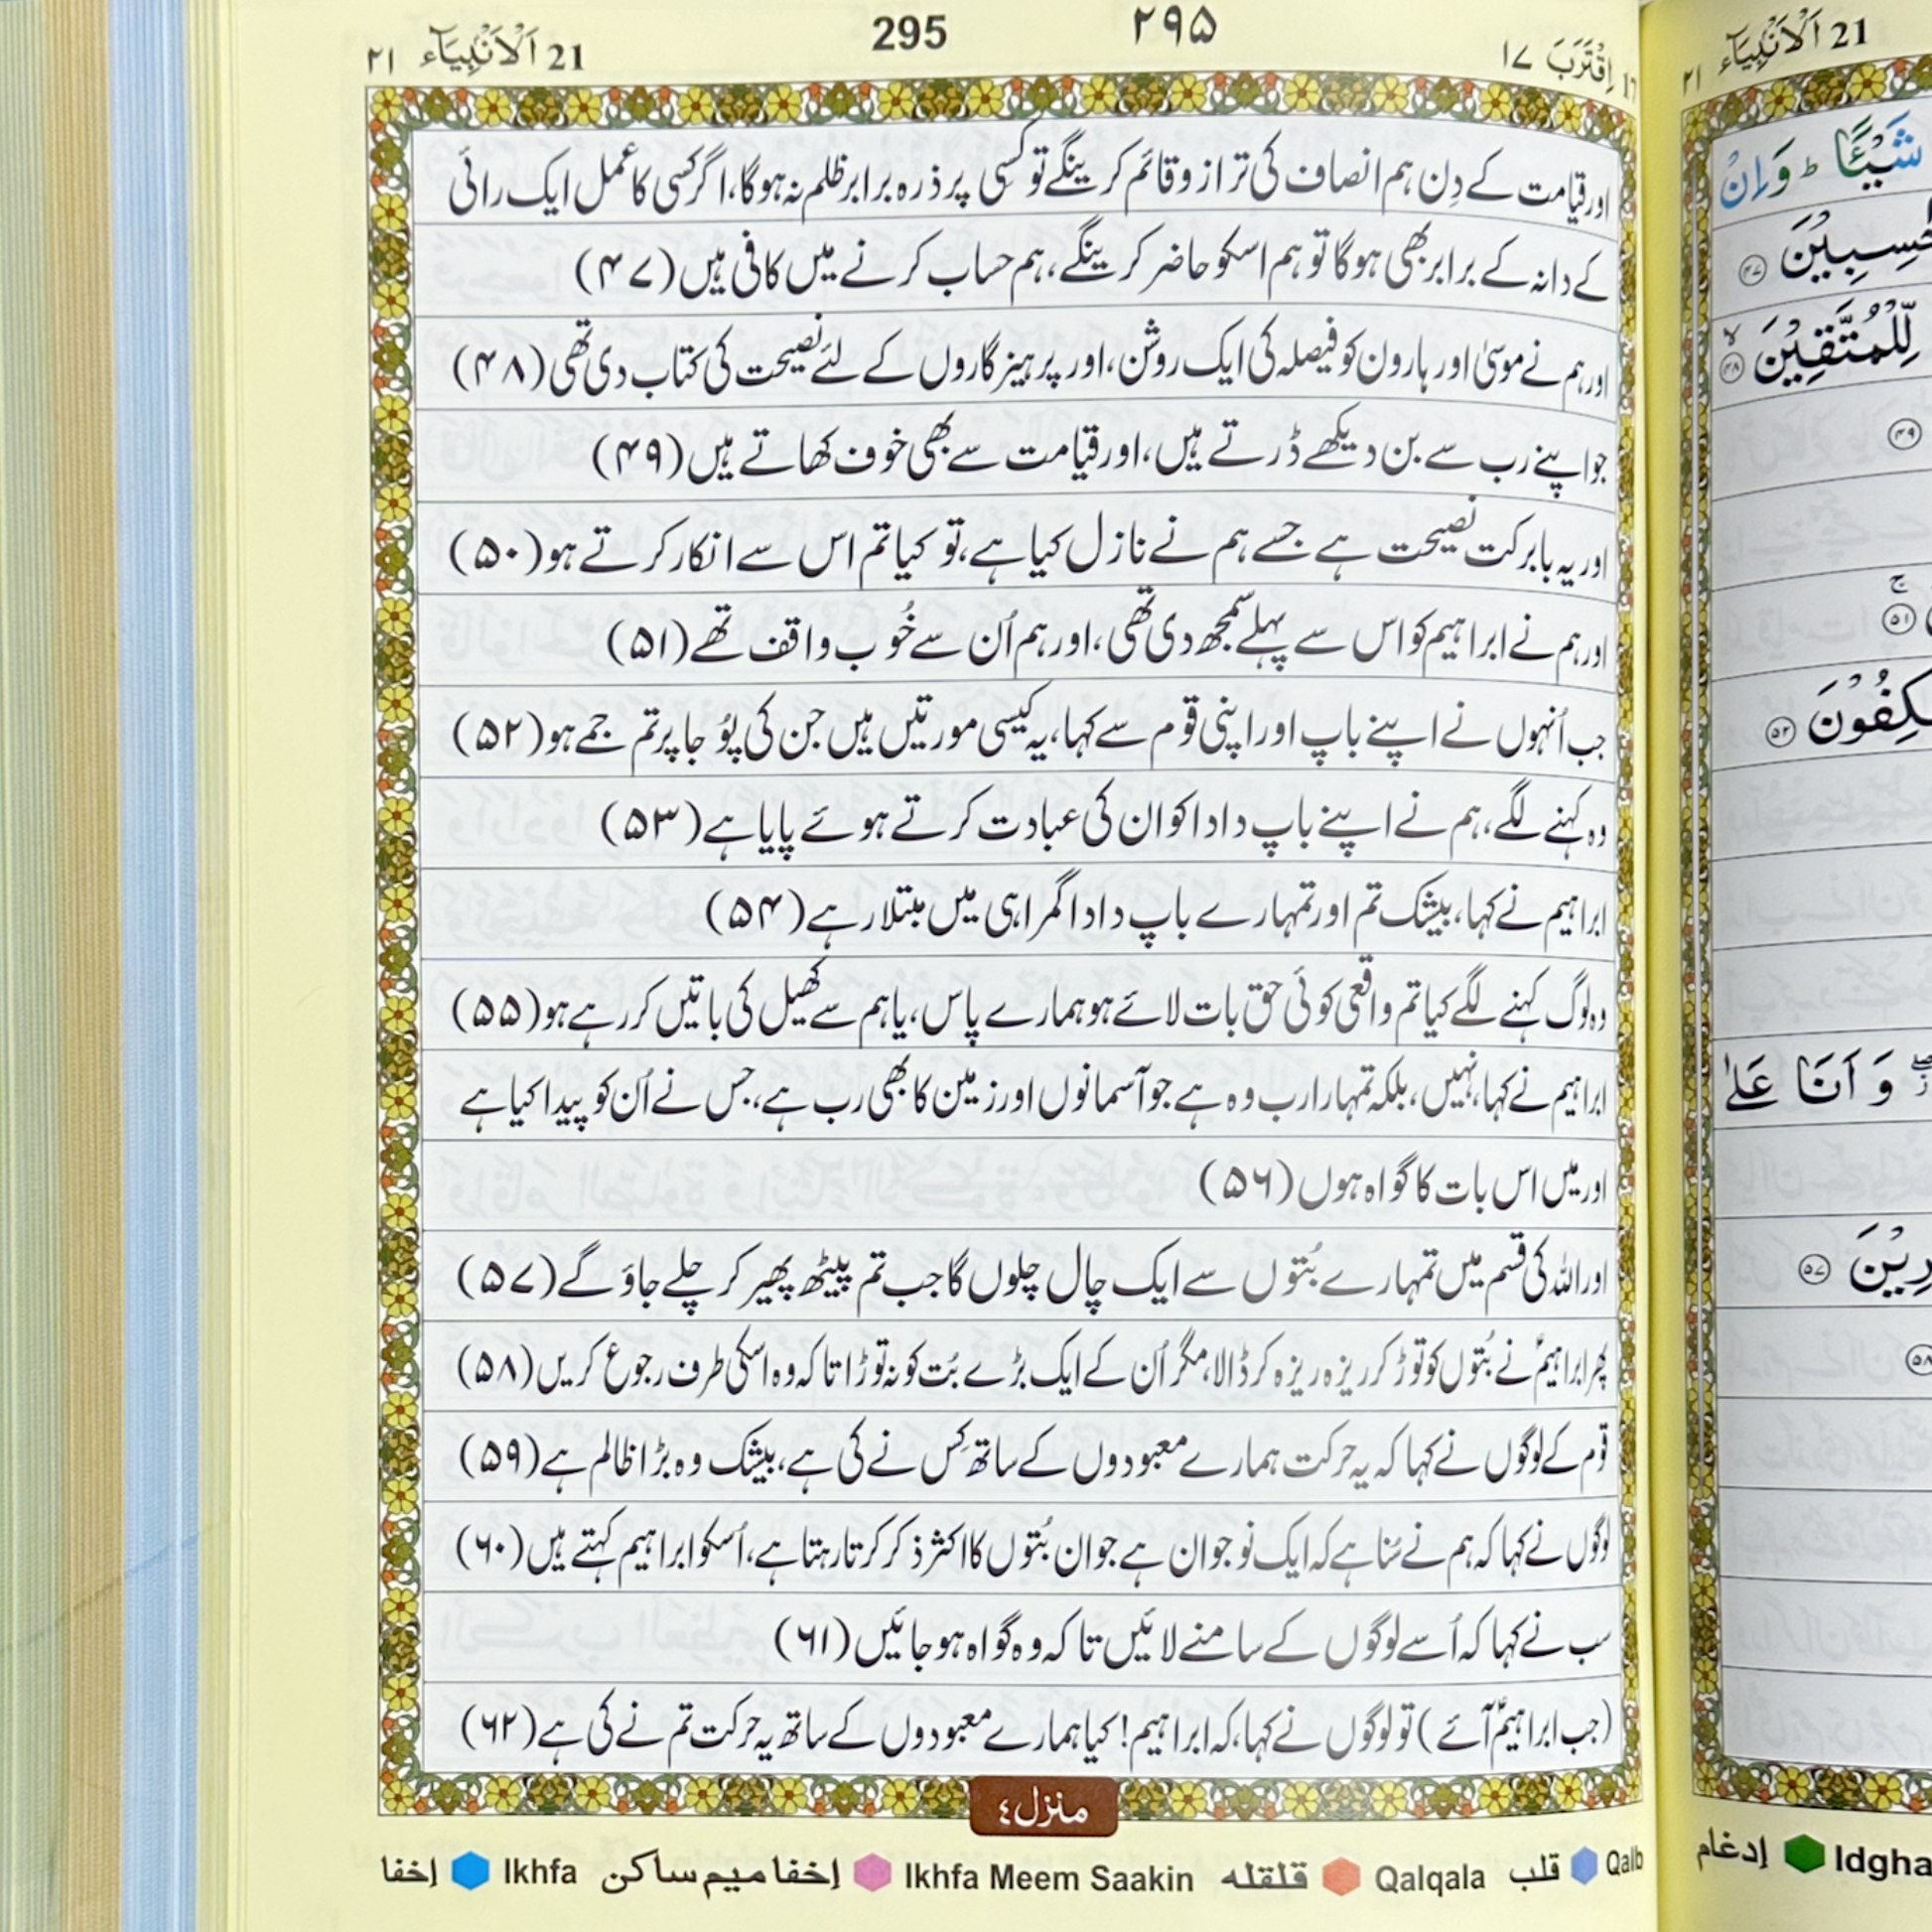 21 اَلْاَنْۢبِیَآء ۲۱
295
۲۹۵
اِقْتَرَبَ ۱۷
اور قیامت کے دِن ہم انصاف کی ترازو قائم کرینگے تو کسِی پر ذرہ برابر ظلم نہ ہوگا، اگر کسی کا عمل ایک رائی
کے دانہ کے برابر بھی ہوگا تو ہم اسکو حاضر کرینگے، ہم حساب کرنے میں کافی ہیں (۴۷)
اور ہم نے موسیٰ اور ہارون کو فیصلہ کی ایک روشن، اور پرہیزگاروں کے لئے نصیحت کی کتاب دی تھی (۴۸)
جو اپنے رب سے بن دیکھے ڈرتے ہیں، اور قیامت سے بھی خوف کھاتے ہیں (۴۹)
اور یہ بابرکت نصیحت ہے جسے ہم نے نازل کیا ہے، تو کیا تم اس سے انکار کرتے ہو (۵۰)
اور ہم نے ابراہیم کو اس سے پہلے سمجھ دی تھی، اور ہم اُن سے خُوب واقف تھے (۵۱)
جب اُنہوں نے اپنے باپ اور اپنی قوم سے کہا، یہ کیسی مورتیں ہیں جن کی پُوجا پر تم جمے ہو (۵۲)
وہ کہنے لگے، ہم نے اپنے باپ دادا کو ان کی عبادت کرتے ہوئے پایا ہے (۵۳)
ابراہیم نے کہا، بیشک تم اور تمہارے باپ دادا گمراہی میں مبتلا رہے (۵۴)
وہ لوگ کہنے لگے کیا تم واقعی کوئی حق بات لائے ہو ہمارے پاس، یا ہم سے کھیل کی باتیں کر رہے ہو (۵۵)
ابراہیم نے کہا، نہیں، بلکہ تمہارا رب وہ ہے جو آسمانوں اور زمین کا بھی رب ہے، جس نے اُن کو پیدا کیا ہے
اور میں اس بات کا گواہ ہوں (۵۶)
اور اللہ کی قسم میں تمہارے بُتوں سے ایک چال چلوں گا جب تم پیٹھ پھیر کر چلے جاؤ گے (۵۷)
پھر ابراہیمؑ نے بُتوں کو توڑ کر ریزہ ریزہ کر ڈالا، مگر اُن کے ایک بڑے بُت کو نہ توڑا تا کہ وہ اسکی طرف رجوع کریں (۵۸)
قوم کے لوگوں نے کہا کہ یہ حرکت ہمارے معبودوں کے ساتھ کِس نے کی ہے، بیشک وہ بڑا ظالم ہے (۵۹)
لوگوں نے کہا کہ ہم نے سُنا ہے کہ ایک نوجوان ہے جو ان بُتوں کا اکثر ذکر کرتا رہتا ہے، اُسکو ابراہیم کہتے ہیں (۶۰)
سب نے کہا کہ اُسے لوگوں کے سامنے لائیں تا کہ وہ گواہ ہو جائیں (۶۱)
(جب ابراہیمؑ آئے) تو لوگوں نے کہا، کہ ابراہیم! کیا ہمارے معبودوں کے ساتھ یہ حرکت تم نے کی ہے (۶۲)
منزل ٤
إخفا Ikhfa إخفا میم ساکن Ikhfa Meem Saakin قلقله Qalqala قلب Qalb
21 اَلْاَنْۢبِیَآء ۲۱
شَیْـًٔا ؕ وَ اِنْ
حٰسِبِیْنَ ۴۷
لِّلْمُتَّقِیْنَ ۴۸
۴۹
۵۱
۵۲
وَ اَنَا عَلٰی
۵۷
۵۸
إدغام